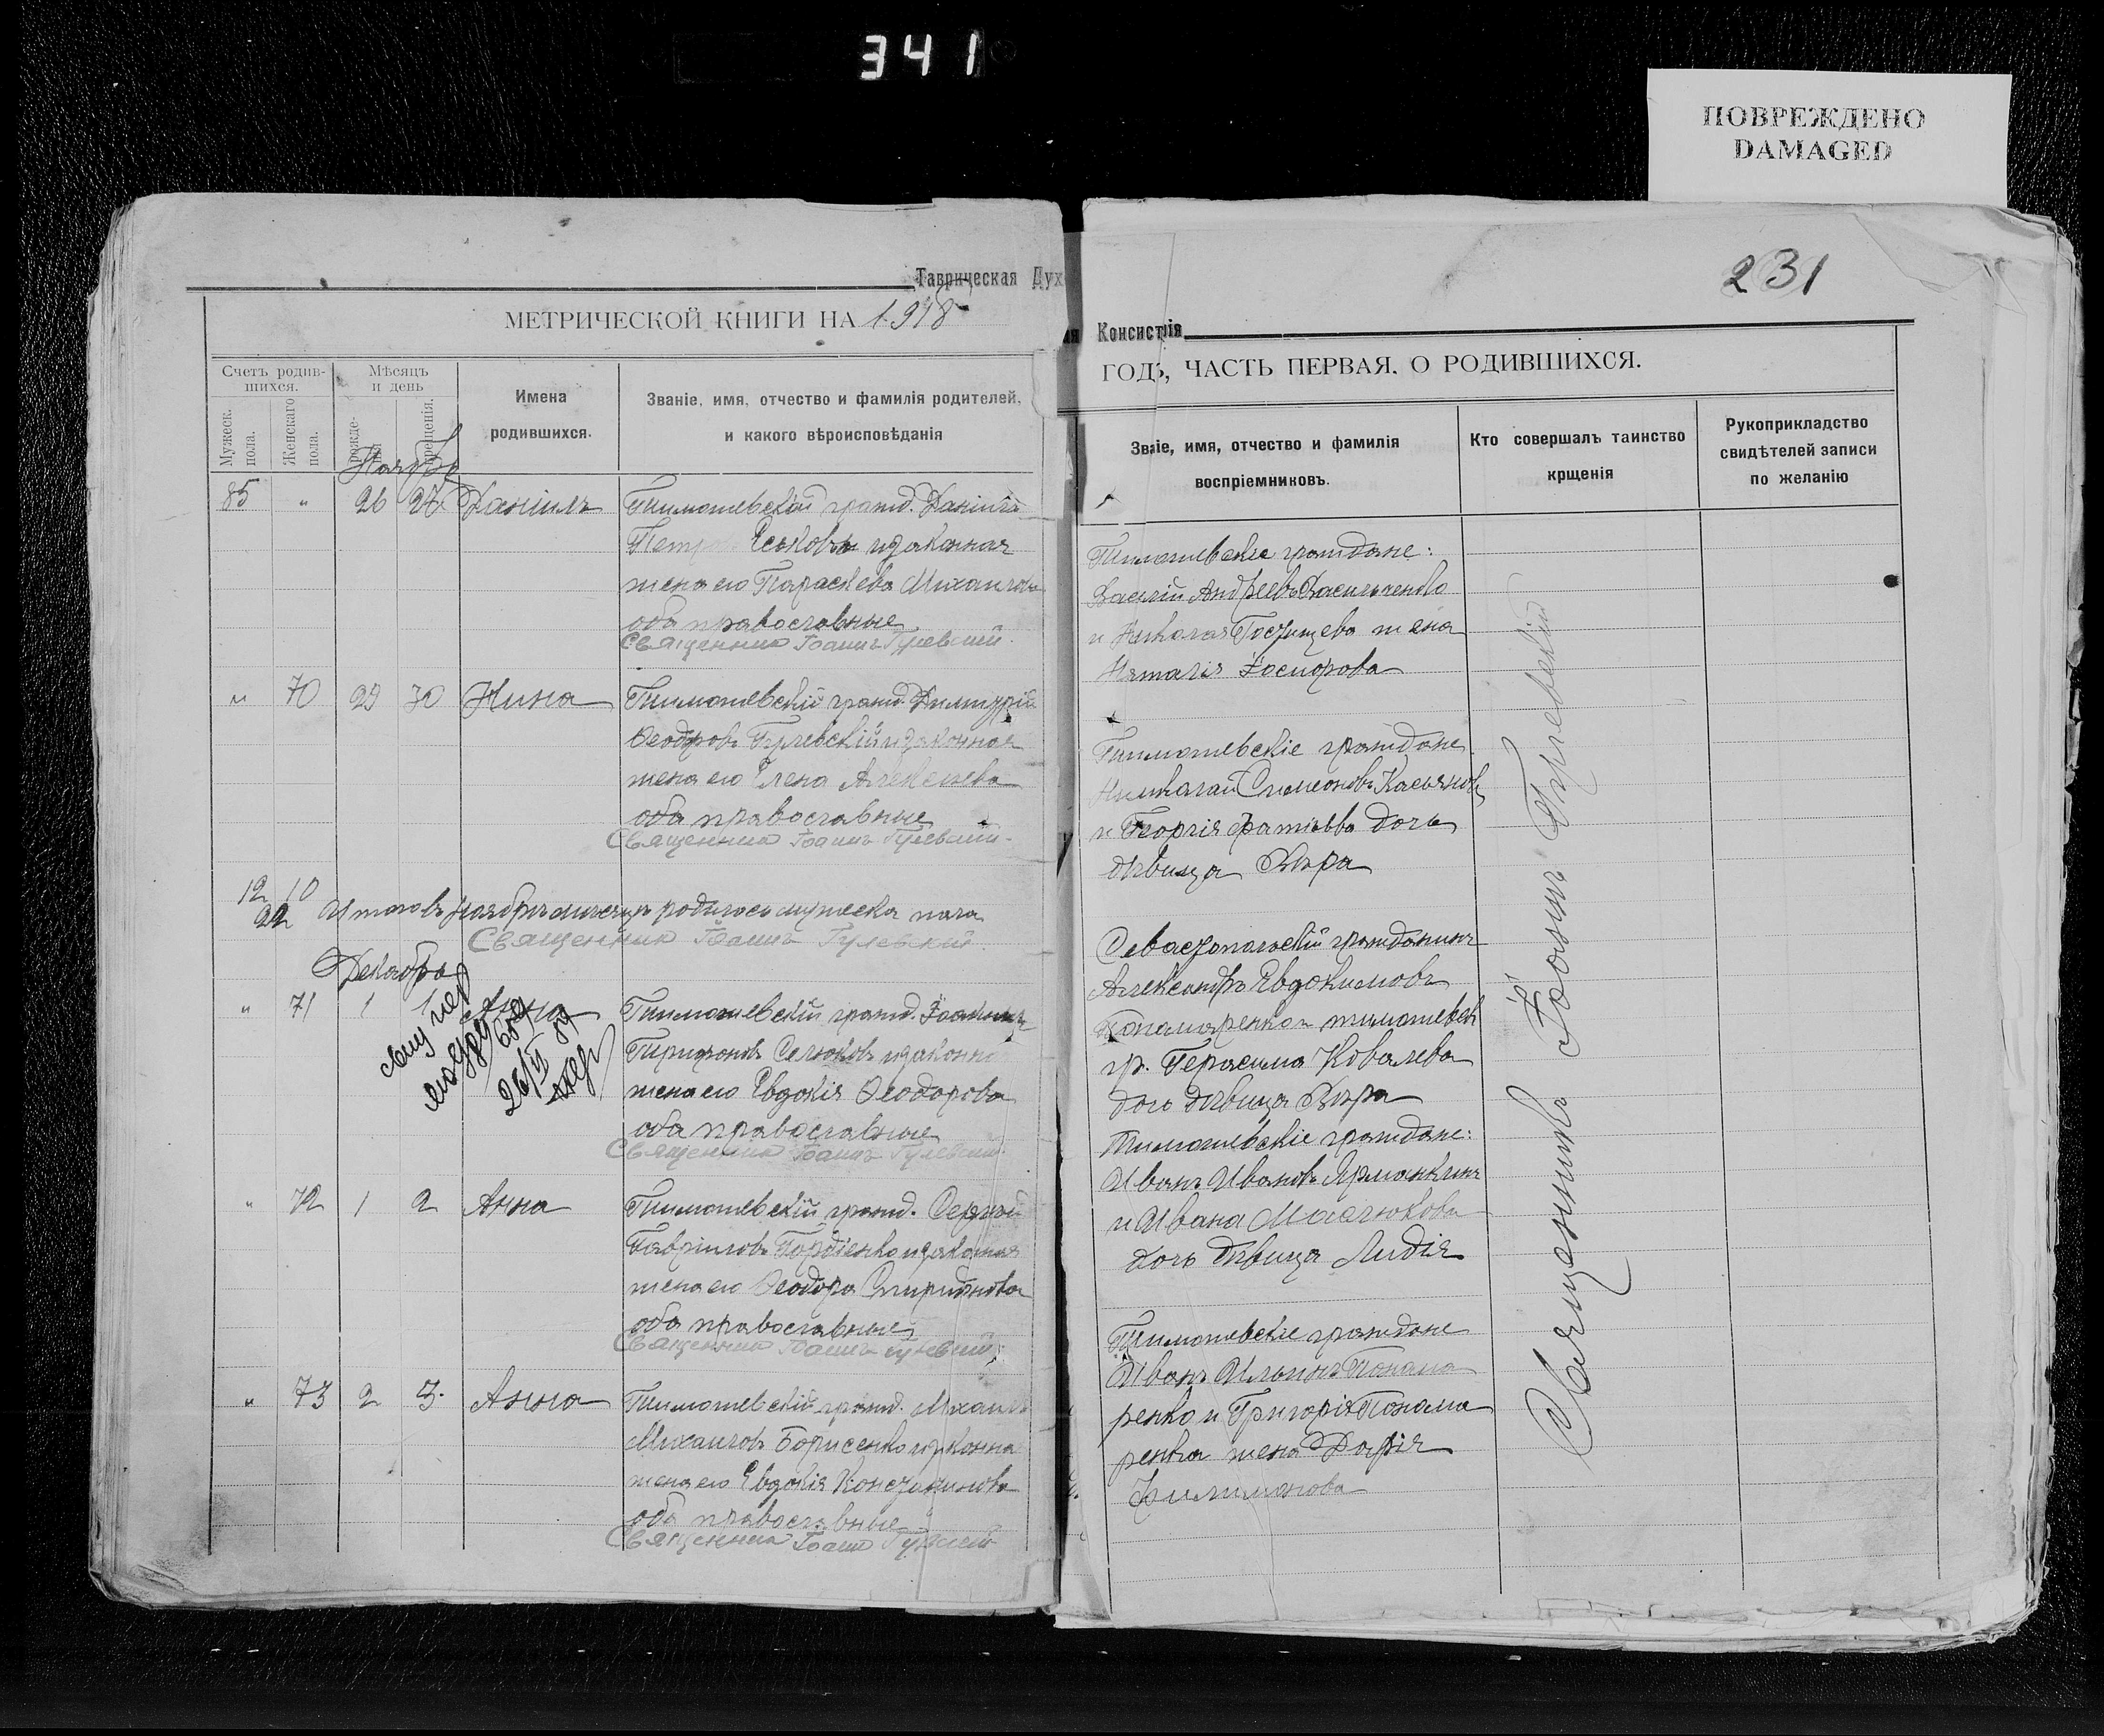 341
ПОВРЕЖДЕНО
DAMAGED
231
Таврическая Дух
МЕТРИЧЕСКОЙ КНИГИ НА 1918
Счетъ родив-
шихся.
Мужеск.
пола.
Женскаго
пола.
Мѣсяцъ
и день
рожде-
нія
крещенія.
Имена
родившихся.
Званіе, имя, отчество и фамилія родителей,
и какого вѣроисповѣданія
Ноябрь
85 " 26 27 Даніилъ
Тимошевскій гражд. Даніилъ
Петр Еськовъ и законная
жена его Параскева Михаилова
оба православные
Священникъ Іоаннъ Гулевскій.
" 70 29 30 Нина
Тимошевскій гражд. Димитрій
Ѳеодоровъ Гулевскій и законная
жена его Елена Алексѣева
оба православные
Священникъ Іоаннъ Гулевскій.
12 10
22 Итого въ Ноябрѣ мѣсяцѣ родилось мужеска пола
Священникъ Іоаннъ Гулевскій
Декабрь
" 71 1 1 Анна
26/II
Тимошевскій гражд. Іоакимъ
Селюковъ и законна
жена его Евдокія Ѳеодорова
оба православные
Священникъ Іоаннъ Гулевскій.
" 72 1 2 Анна
Тимошевскій гражд. Сергѣй
Гавріиловъ Гордіенко и законная
жена его Ѳеодора Спиридонова
оба православные
Священникъ Іоаннъ Гулевскій
" 73 2 3. Анна
Тимошевскій гражд. Михаилъ
Михаиловъ Борисенко и законна
жена его Евдокія Константинова
оба православные
Священникъ Іоаннъ Гулевскій
ая Консисторія
ГОДЪ, ЧАСТЬ ПЕРВАЯ. О РОДИВШИХСЯ.
Званіе, имя, отчество и фамилія
воспріемниковъ.
Кто совершалъ таинство
крщенія
Рукоприкладство
свидѣтелей записи
по желанію
Тимошевскіе граждане:
Василій Андреевъ Васильченко
и Николая Гостищева жена
Наталія
Тимошевскіе граждане
Николай Симеоновъ Касьяновъ
и Георгія дочь
дѣвица Вѣра
Севастопольскій гражданинъ
Александръ Евдокимовъ
Пономаренко и тимошевск
гр. Герасима Ковалева
дочь дѣвица Вѣра
Тимошевскіе граждане:
Иванъ Ивановъ Ярманкинъ
и Ивана Маслюкова
дочь дѣвица Лидія
Тимошевскіе граждане
Иванъ Ильинъ Понама
ренко и Григорія Понама
ренка жена Дарія
Филимонова
Священникъ Іоаннъ Гулевскій